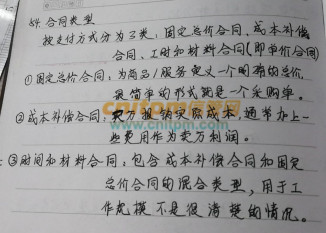 84.合同类型
按支付方式分为3类:固定总价合同、成本补偿
合同、工时和材料合同(即单价合同)
①固定总价合同:为商品/服务定义一个明确的总价
最简单的形式就是一个采购单。
②成本补偿合同:卖方报销实际成本,通常加上一
些费用作为卖方利润。
③时间和材料合同:包含成本补偿合同和固定
总价合同的混合类型,用于工
作规模不是很清楚的情况。
www.cnitpm.com